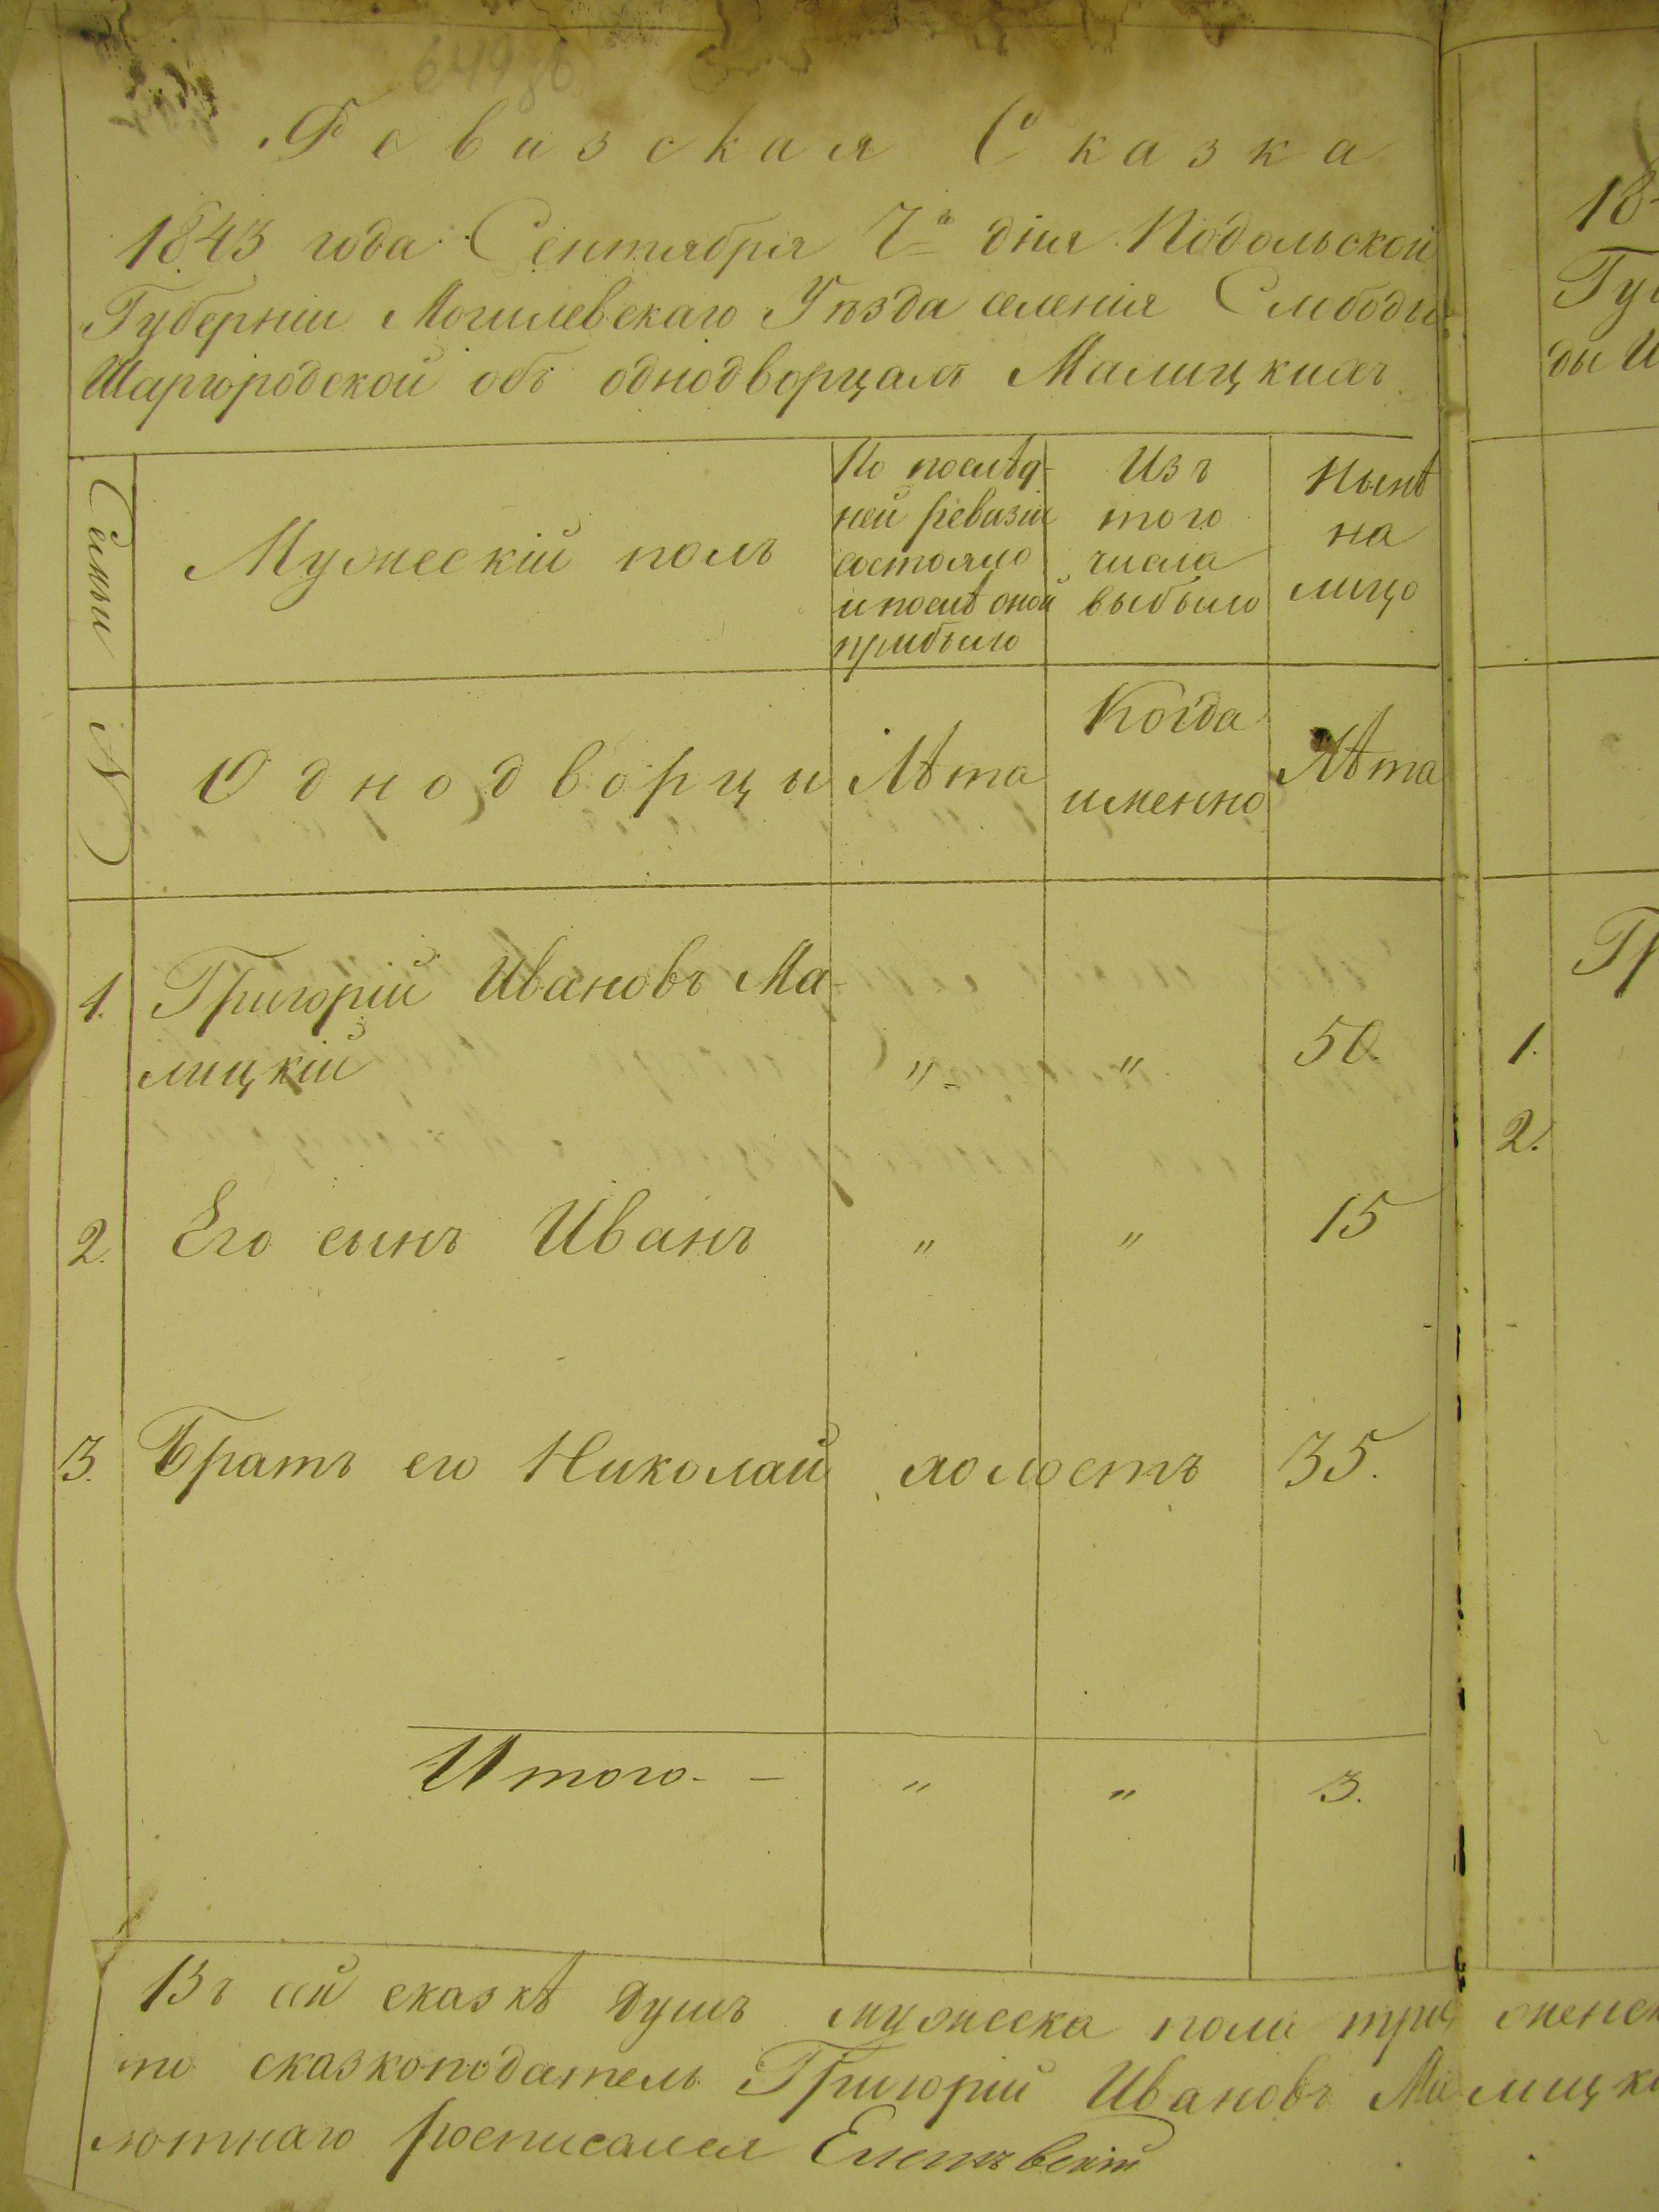 Ревизская Сказка
1843 года Сентября 7го дня Подольской
Губернии Могилевскаго Уѣзда селенія Слободы
Шаргородской объ однодворцахъ Малицкихъ
Семьи
Мужескій полъ
По послѣд-
ней ревизіи
состояло
и послѣ оной
прибыло
Изъ
того
числа
выбыло
Нынѣ
на
лицо
N
Однодворцы
Лѣта
Когда
именно
Лѣта
1. Григорій Ивановъ Ма-
лицкій " " 50.
2. Его сынъ Иванъ " " 15
3. Братъ его Николай холостъ 35.
Итого - - " " 3.
Въ сей сказкѣ душъ мужеска пола три женск
то сказкоподатель Григорій Ивановъ Малицкі
росписался
18
Гу
ды
Гр
1.
2.